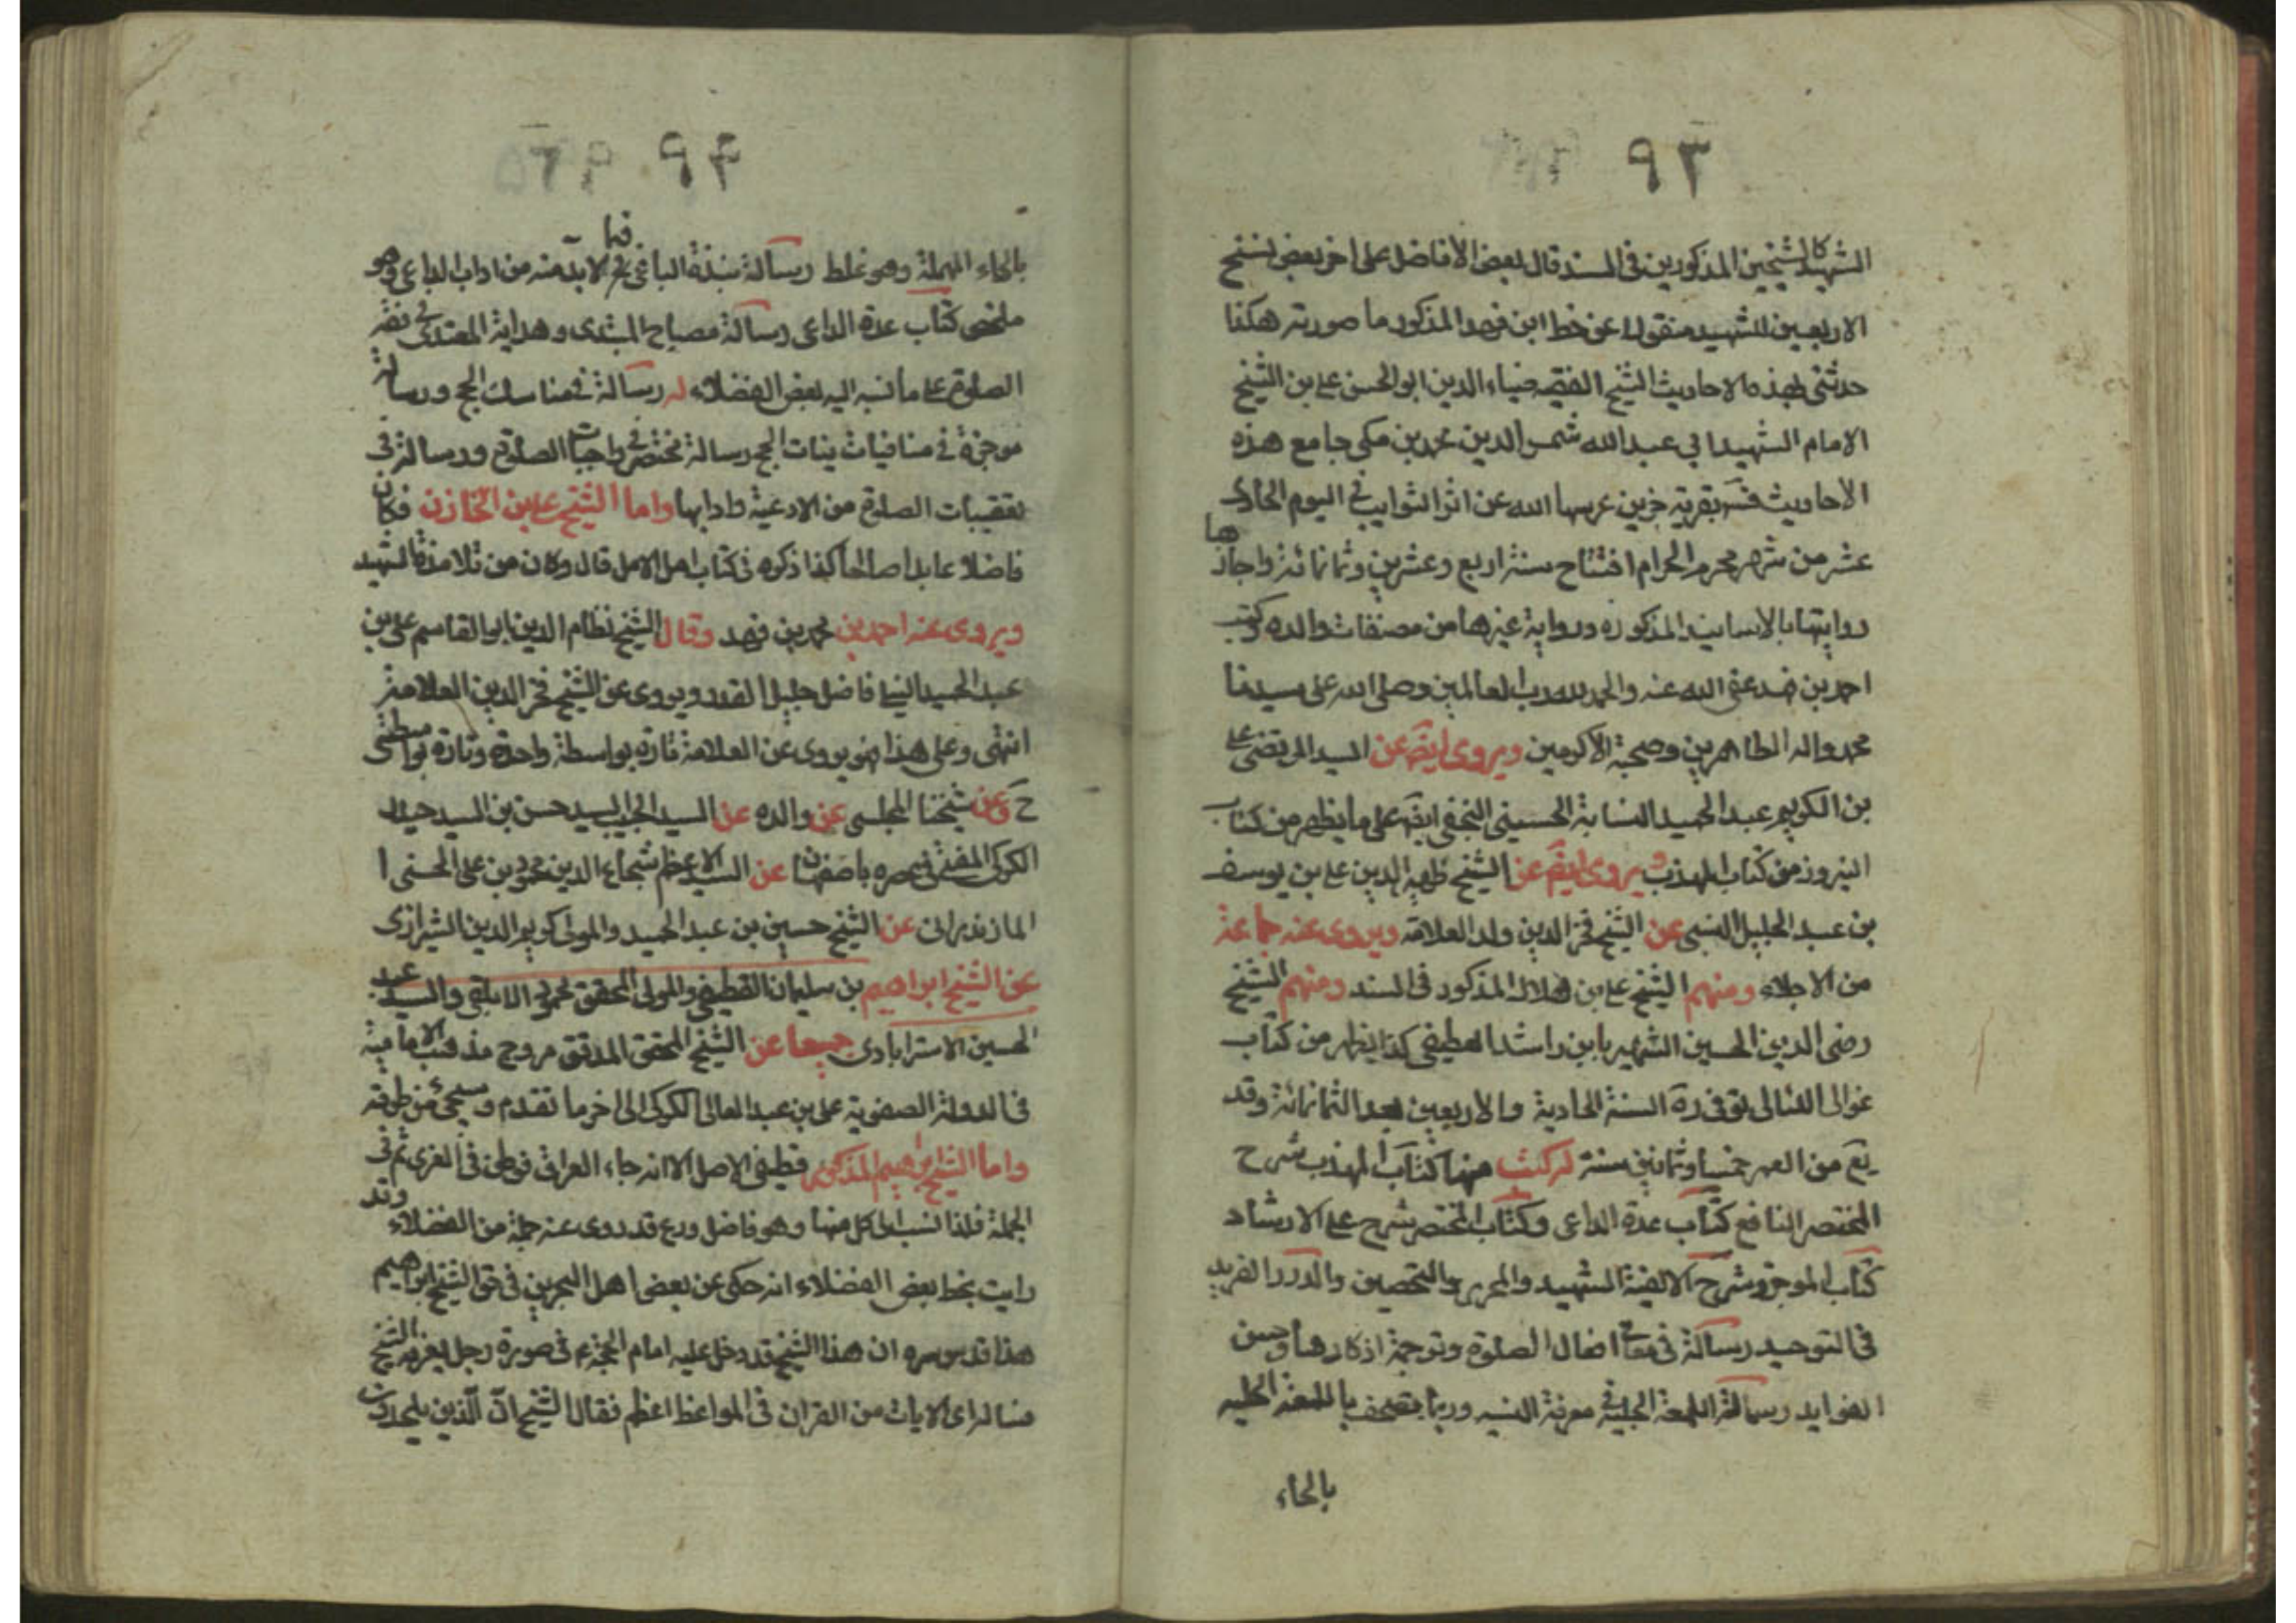 ٩٣
الشهيد كالشيخين المذكورين فى السند قال بعض الأفاضل على اخر بعض نسخ
الاربعين للشهيد منقولا عن خط ابن فهد المذكور ما صورته هكذا
حدثنى بهذه الاحاديث الشيخ الفقيه ضياء الدين ابو الحسن على بن الشيخ
الامام الشهيد ابي عبد الله شمس الدين محمد بن مكى جامع هذه
الاحاديث بقرية جزين حرسها الله عن النوايب في اليوم الحادى
عشر من شهر محرم الحرام افتتاح سنة اربع وعشرين وثمانمائة واجازها
روايتها بالاسانيد المذكورة ورواية غيرها من مصنفات والده وكتب
احمد بن فهد عفى الله عنه والحمد لله رب العالمين وصلى الله على سيدنا
محمد واله الطاهرين وصحبه الاكرمين ويروى ايضا عن السيد المرتضى على
بن الكريم عبد الحميد النسابة الحسينى النجفى ايضا على ما يظهر من كتاب
النيروز من كتاب المهذب ويروى ايضا عن الشيخ ظهير الدين على بن يوسف
بن عبد الجليل النيلى عن الشيخ فخر الدين ولد العلامة ويروى عنه جماعة
من الاجلاء ومنهم الشيخ على بن هلال المذكور فى السند ومنهم الشيخ
رضى الدين الحسين الشهير بابن راشد القطيفى كذا يظهر من كتاب
غوالى اللئالى توفى ره السنة الحادية والاربعين بعد الثمانمائة وقد
بلغ من العمر خمسا وثمانين سنة له كتب منها كتاب المهذب شرح
المختصر النافع كتاب عدة الداعى وكتاب المختصر شرح على الارشاد
كتاب الموجز وشرح الالفية الشهيد والمحرر والتحصين والدرر الفريد
فى التوحيد رسالة فى معانى افعال الصلوة وترجمة اذكارها وحسن
الفوايد رسالة اللمعة الجلية فى معرفة النية وربما يصحف باللمعة الحلية
بالحاء
٩٤
بالحاء المهملة وهو غلط رسالة نبذة الباغى فيما لابد منه من اداب الداعى وهو
ملخص كتاب عدة الداعى رسالة مصباح المبتدى وهداية المقتدى فى فقه
الصلوة على ما نسبه اليه بعض الفضلاء له رسالة فى مناسك الحج ورسالة
موجزة فى منافيات نيات الحج رسالة مختصرة فى واجبات الصلوة ورسالة فى
تعقيبات الصلوة من الادعية وادابها واما الشيخ على بن الخازن فكان
فاضلا عابدا صالحا كذا ذكره فى كتاب امل الامل قال وكان من تلامذة الشهيد
ويروى عنه احمد بن محمد بن فهد وقال الشيخ نظام الدين ابو القاسم على بن
عبد الحميد النيلى فاضل جليل القدر ويروى عن الشيخ فخر الدين العلامة
انتهى وعلى هذا فهو يروى عن العلامة تارة بواسطة واحدة وتارة بواسطتى
ح وعن شيخنا المجلسى عن والده عن السيد الحسيب السيد حسن بن السيد حيدر
الكركى المفتى باصفهان عن السيد الاعظم شجاع الدين محمود بن على الحسنى ا
المازندرانى عن الشيخ حسين بن عبد الحميد والمولى كريم الدين الشيرازى
عن الشيخ ابراهيم بن سليمان القطيفى والمولى المحقق محمود الابلقى والسيد عبد
الحسين الاسترابادى جميعا عن الشيخ المحقق المدقق مروج مذهب الامامية
فى الدولة الصفوية على بن عبد العالى الكركى الى اخر ما تقدم وسيجئ من طرقه
واما الشيخ ابراهيم المذكور قطيفى الاصل الا انه جاء العراق فوطن فى الغرى ثم فى
الحلة فلذا نسب الى كل منهما وهو فاضل ورع قد روى عنه جملة من الفضلاء وقد
رايت بخط بعض الفضلاء انه حكى عن بعض اهل البحرين فى حق الشيخ ابراهيم
هذا قدس سره ان هذا الشيخ قد دخل عليه امام الحجة ع فى صورة رجل يعرفه الشيخ
فساله اى الايات من القران فى المواعظ اعظم فقال الشيخ ان الذين يلحدون